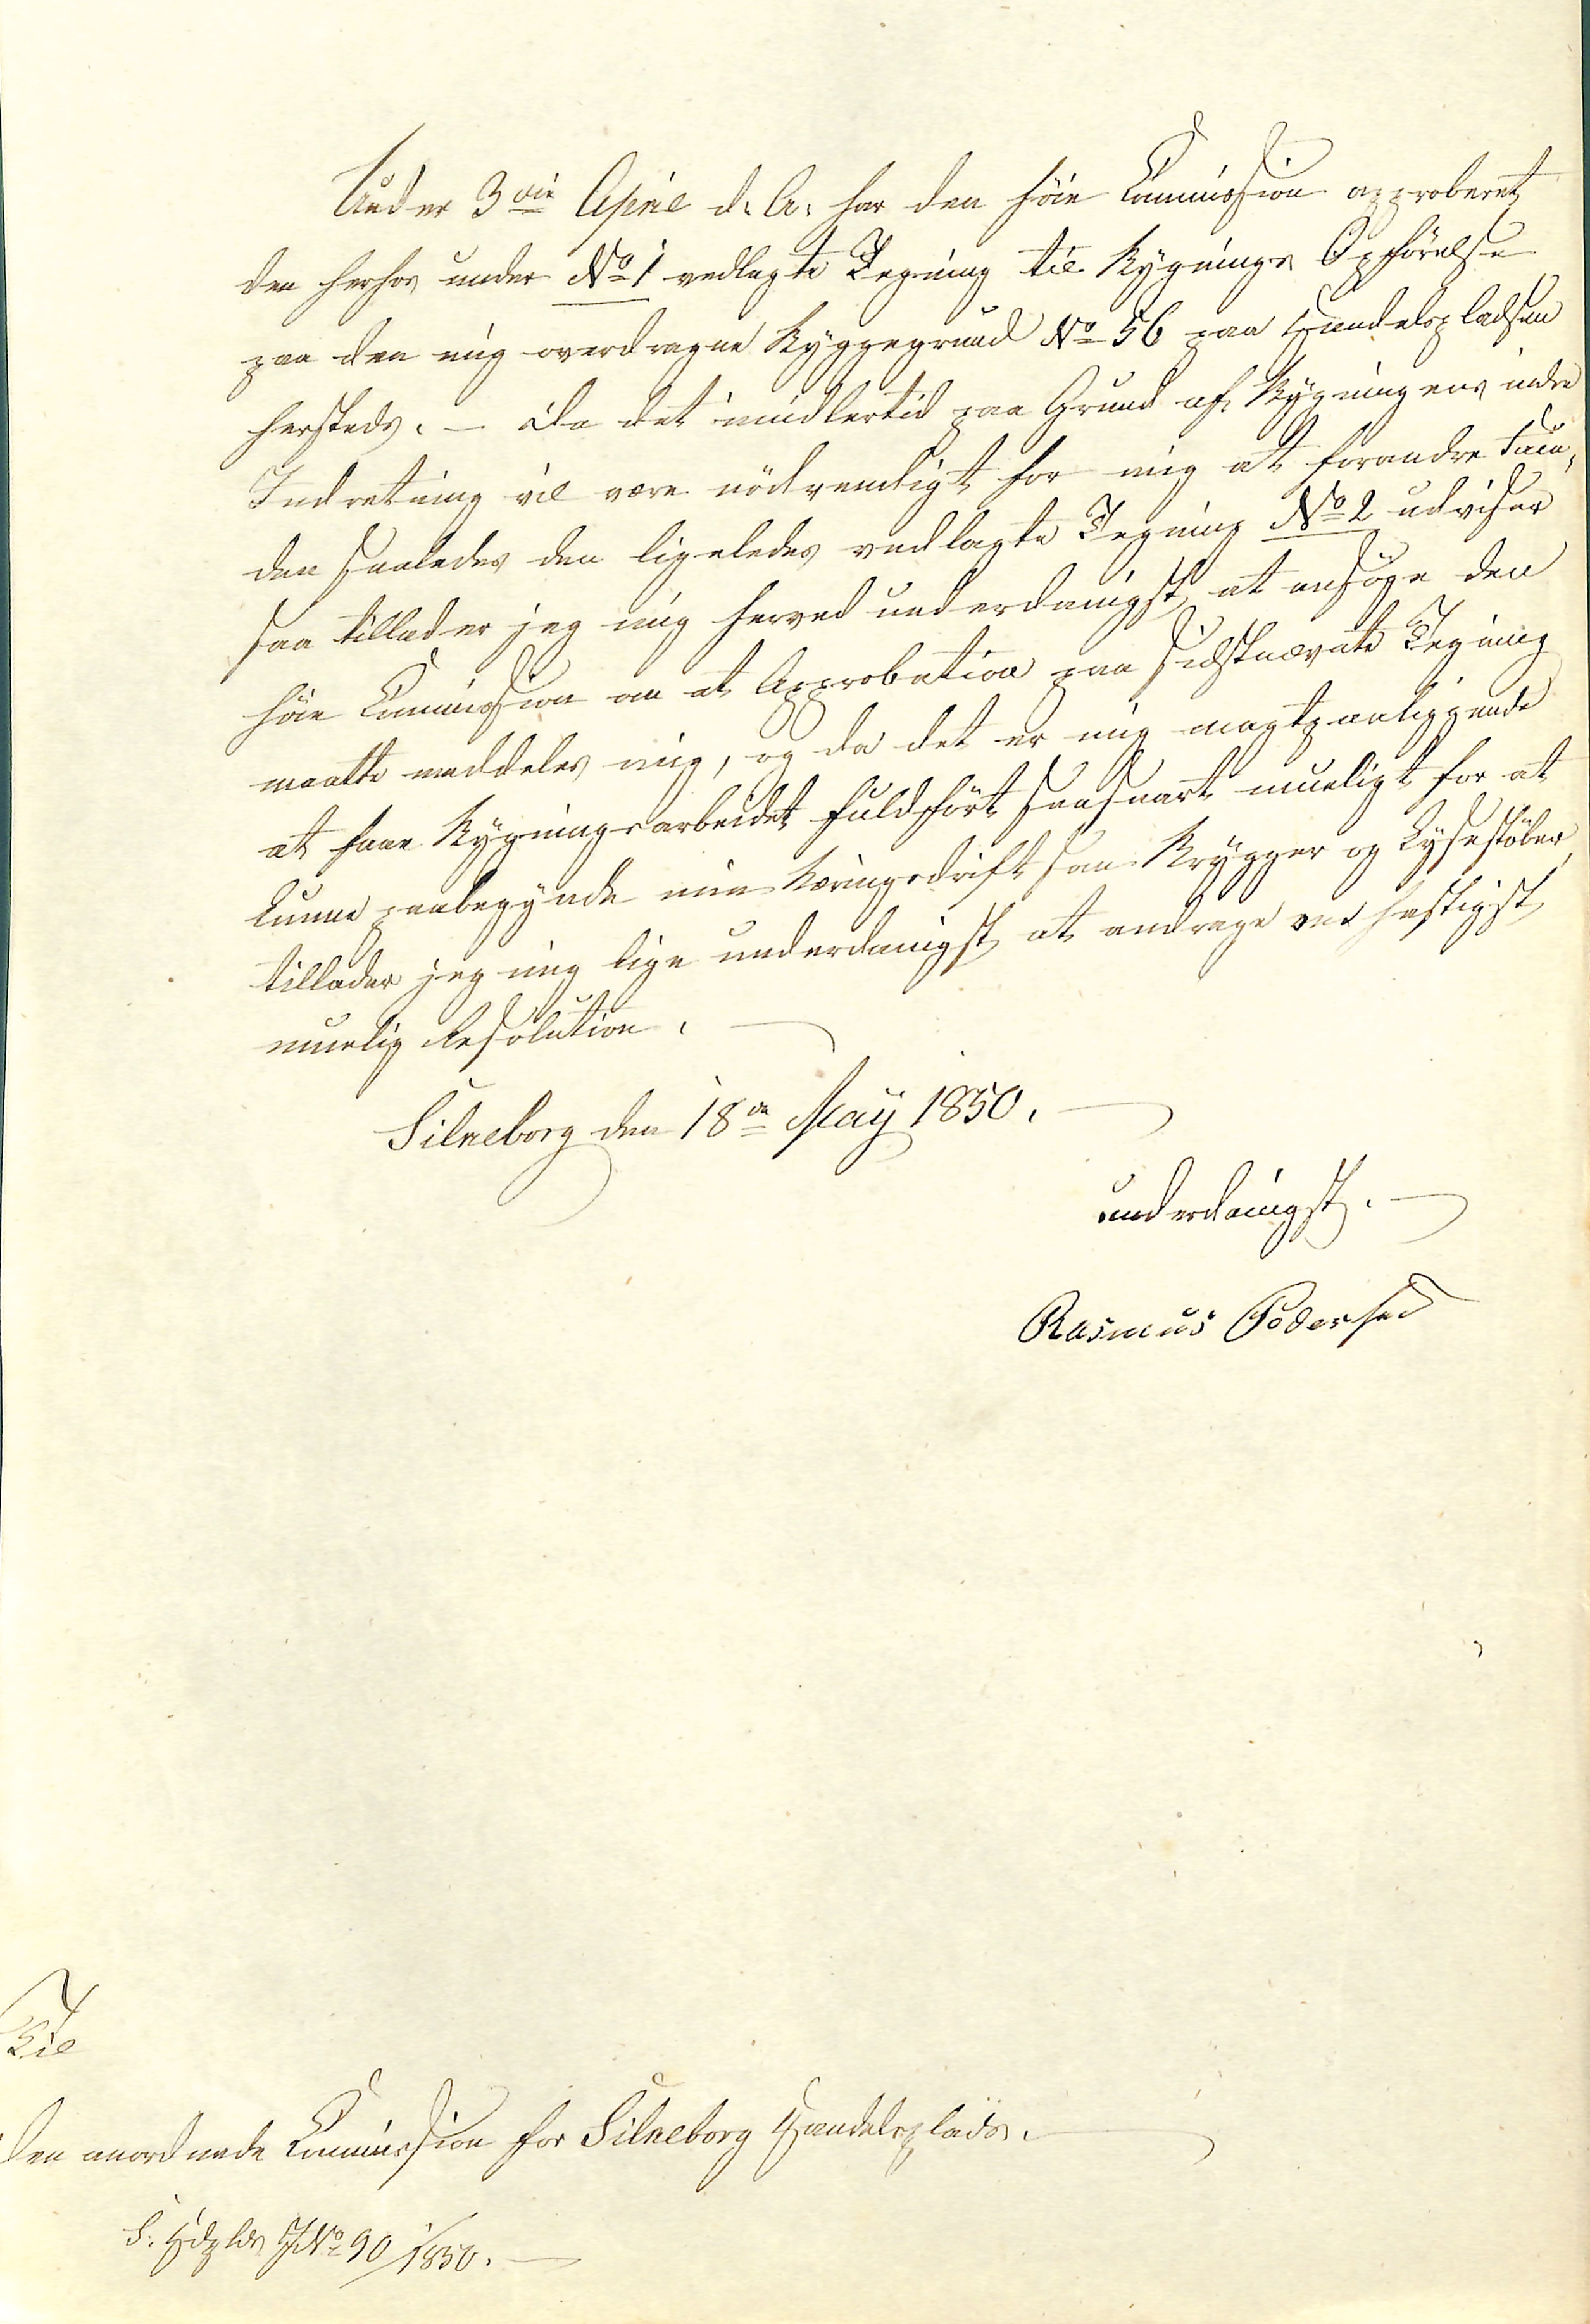 Under 3die April d: A: har den höie Commission approberet
den herhos under No 1 vedlagte Tegning til Bygnings Opförelse
paa den mig overdragne Byggegrund No 56 paa Handelspladsen
hersteds. – Da det imidlertid paa Grund af Bygningens indre
Indretning vil være nödvendigt for mig at forandre Faca-
den saaledes den ligeledes vedlagte Tegning No 2 udviser
saa tillader jeg mig herved underdanigst at ansöge den
höie Commission om at Approbation paa sidstnævnte Tegning
maatte meddeles mig, og da det er mig magtpaaliggende
at faae Bygningsarbeidet fuldfört saasnart mueligt for at
kunne paabegynde min Næringsdrift som Brygger og Lysestöber,
tillader jeg mig lige underdanigst at andrage om hastigst
muelig Resolution. –
Silkeborg den 18de May 1850. –
underdanigst. –
Rasmus Pedersen
Til
den anordnede Commission for Silkeborg Handelsplads. –
S: Hdplds J No 90/1850. –